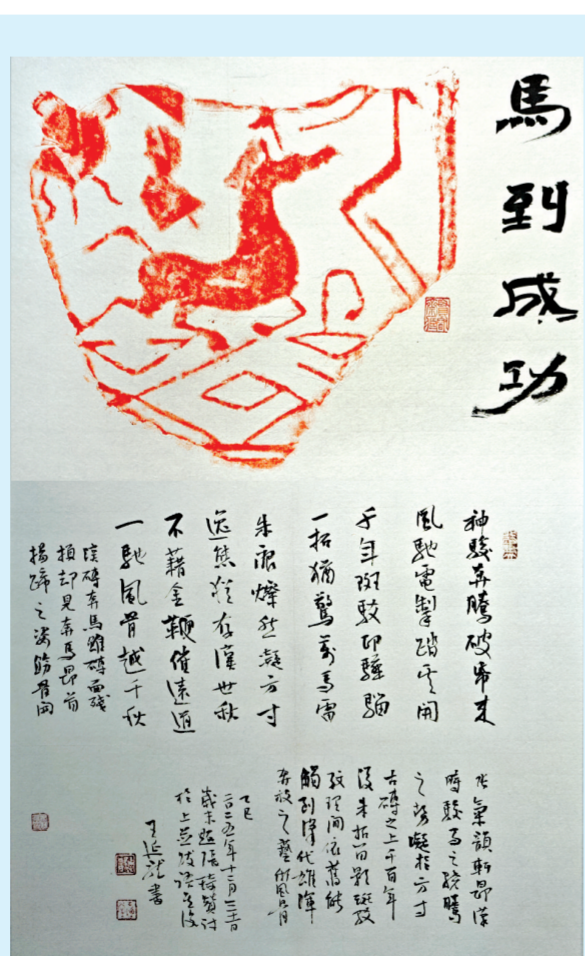 馬到成功
神駿奔騰破 来
風馳電掣踏雲開
千年斑駁印驊騮
一拓猶驚萬馬雷
朱痕燦然凝方寸
逸態猶存漢世秋
不藉金鞭催遠道
一馳風骨越千秋
漢磚奔馬雖磚面殘
損却見奔馬昂首
揚蹄之姿筋骨間
氣韻軒昂漢
時駿馬之驍騰
之勢凝於方寸
古磚之上千百年
後朱拓留影斑駁
紋理間依舊能
觸到漢代雄渾
奔放之藝術風骨
乙巳
二〇二五年十二月三十日
歲末
於上並跋語
王延 書